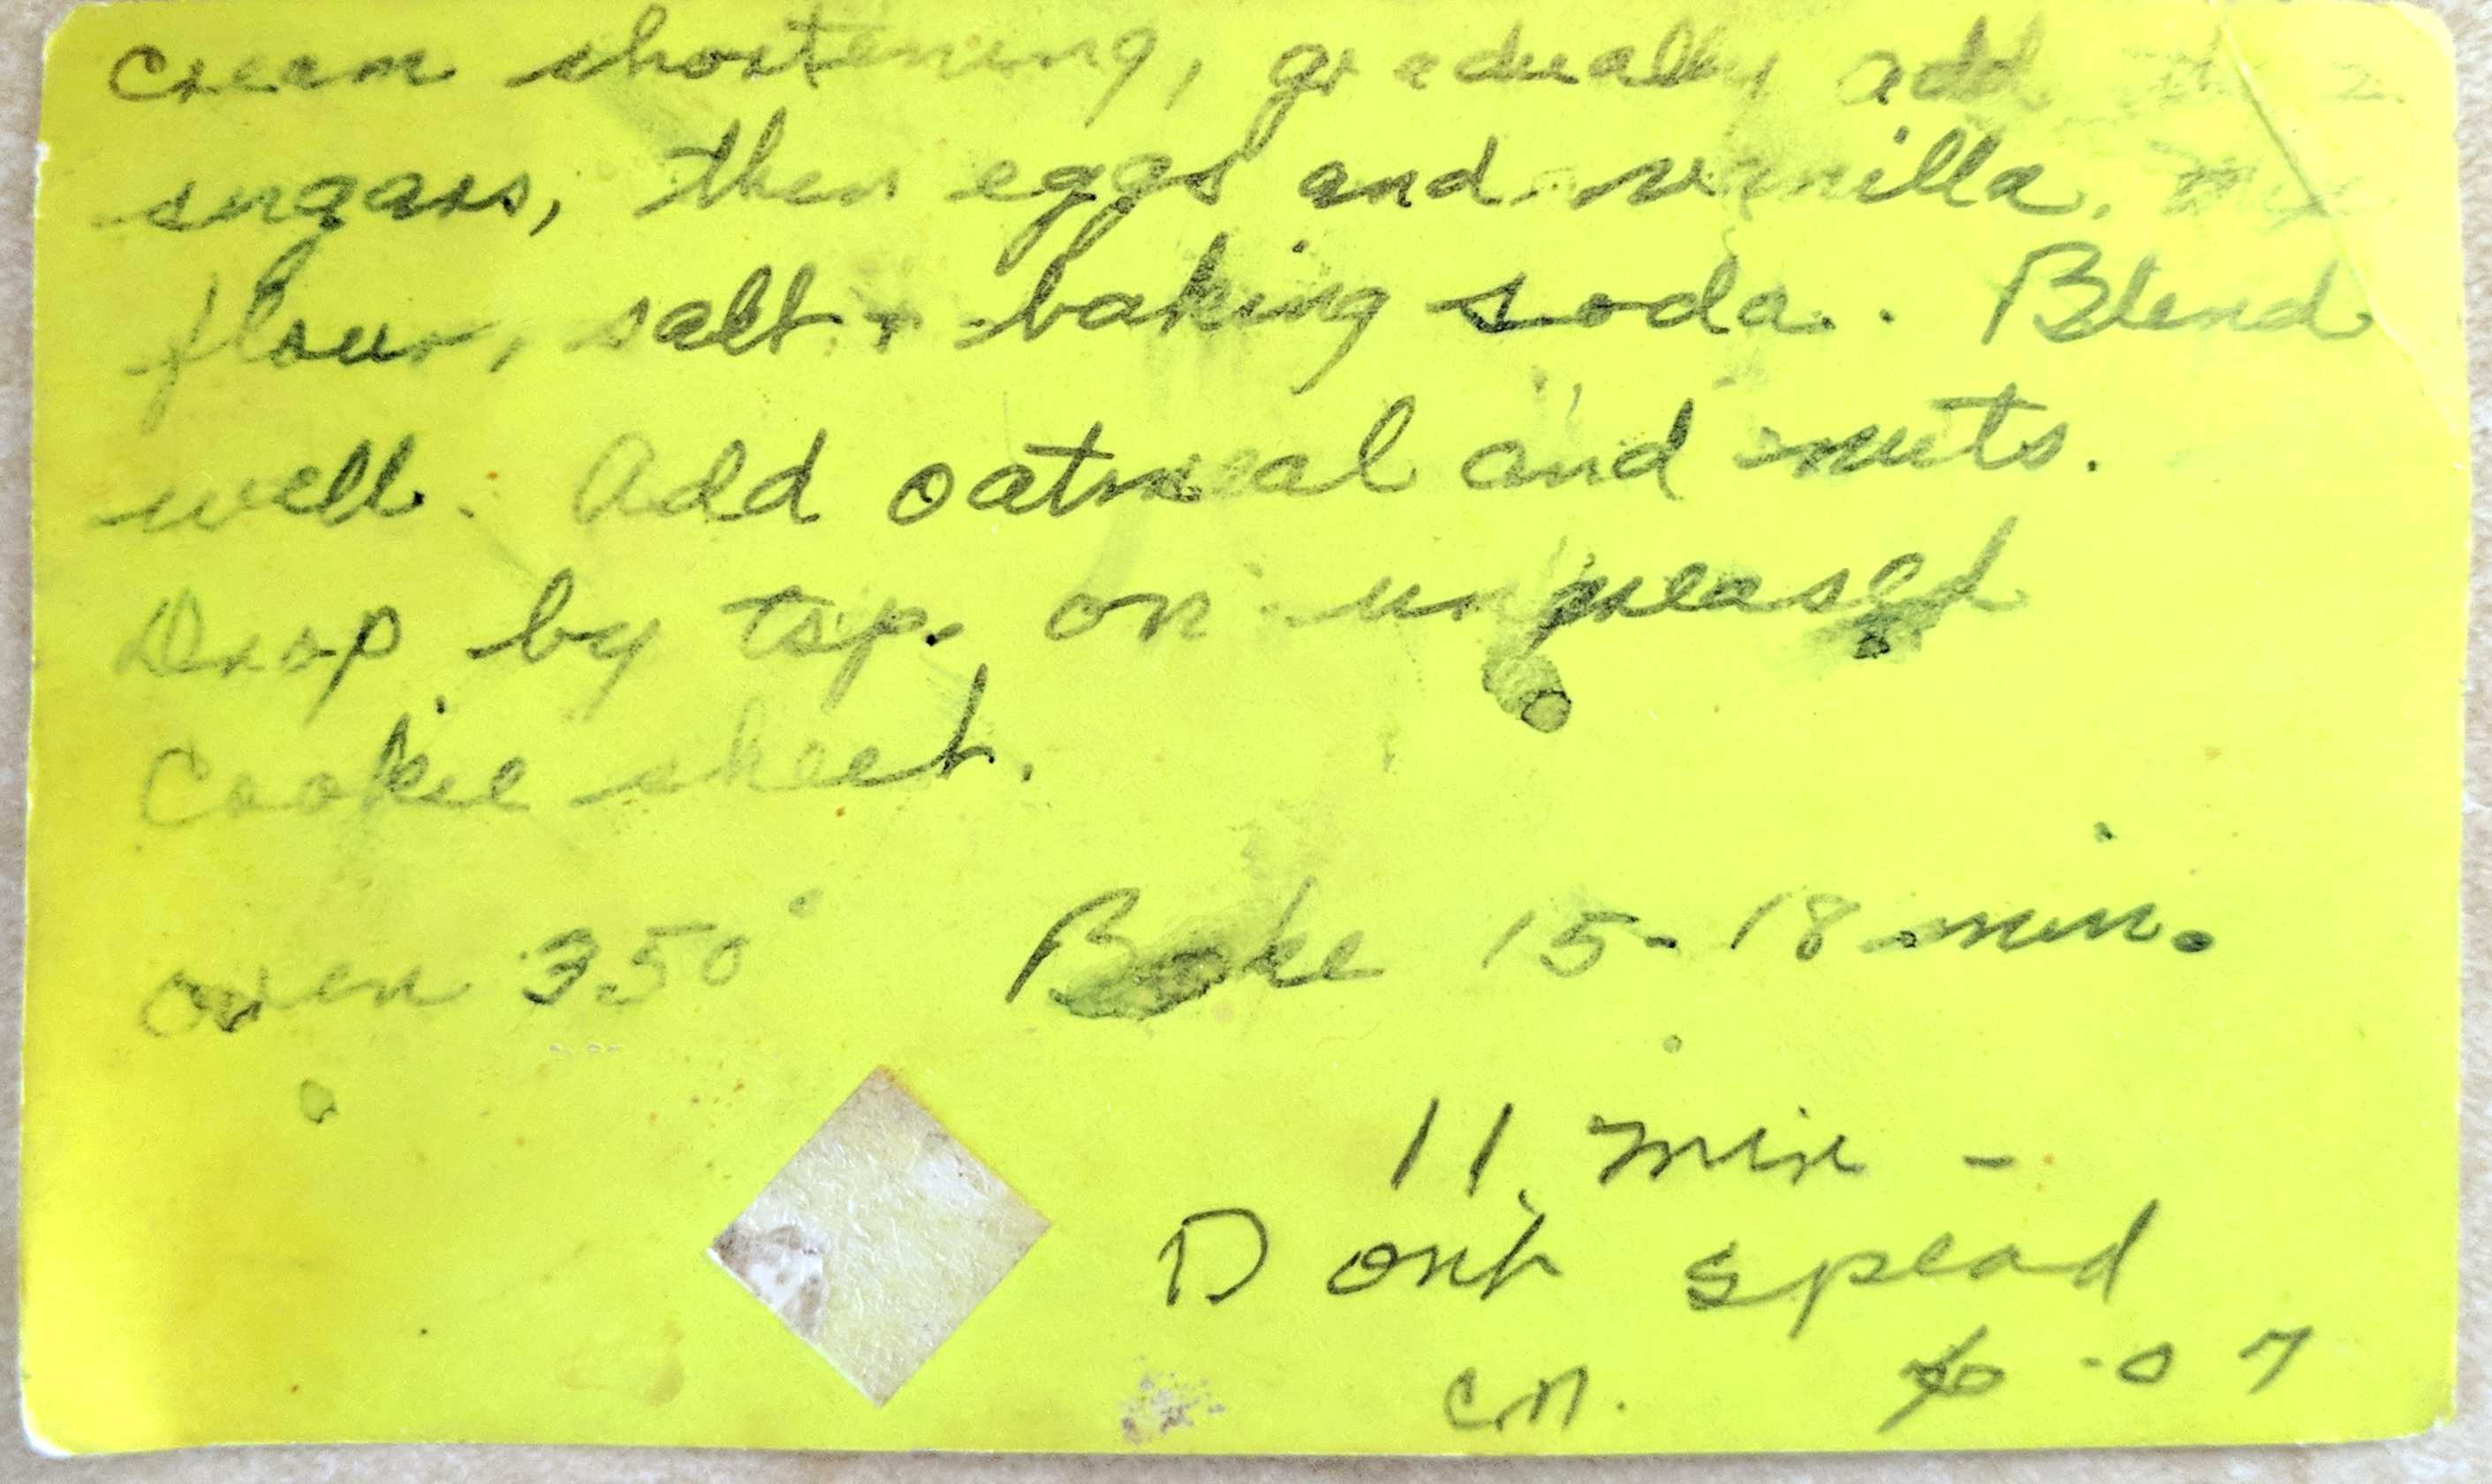 Cream shortening, gradually add the 2
sugars, then eggs and vanilla. mix
flour, salt + baking soda. Blend
well. Add oatmeal and nuts.
Drop by tsp. on ungreased
Cookie sheet.
oven 350° Bake 15-18 min.
11 min -
Don't spead
-07